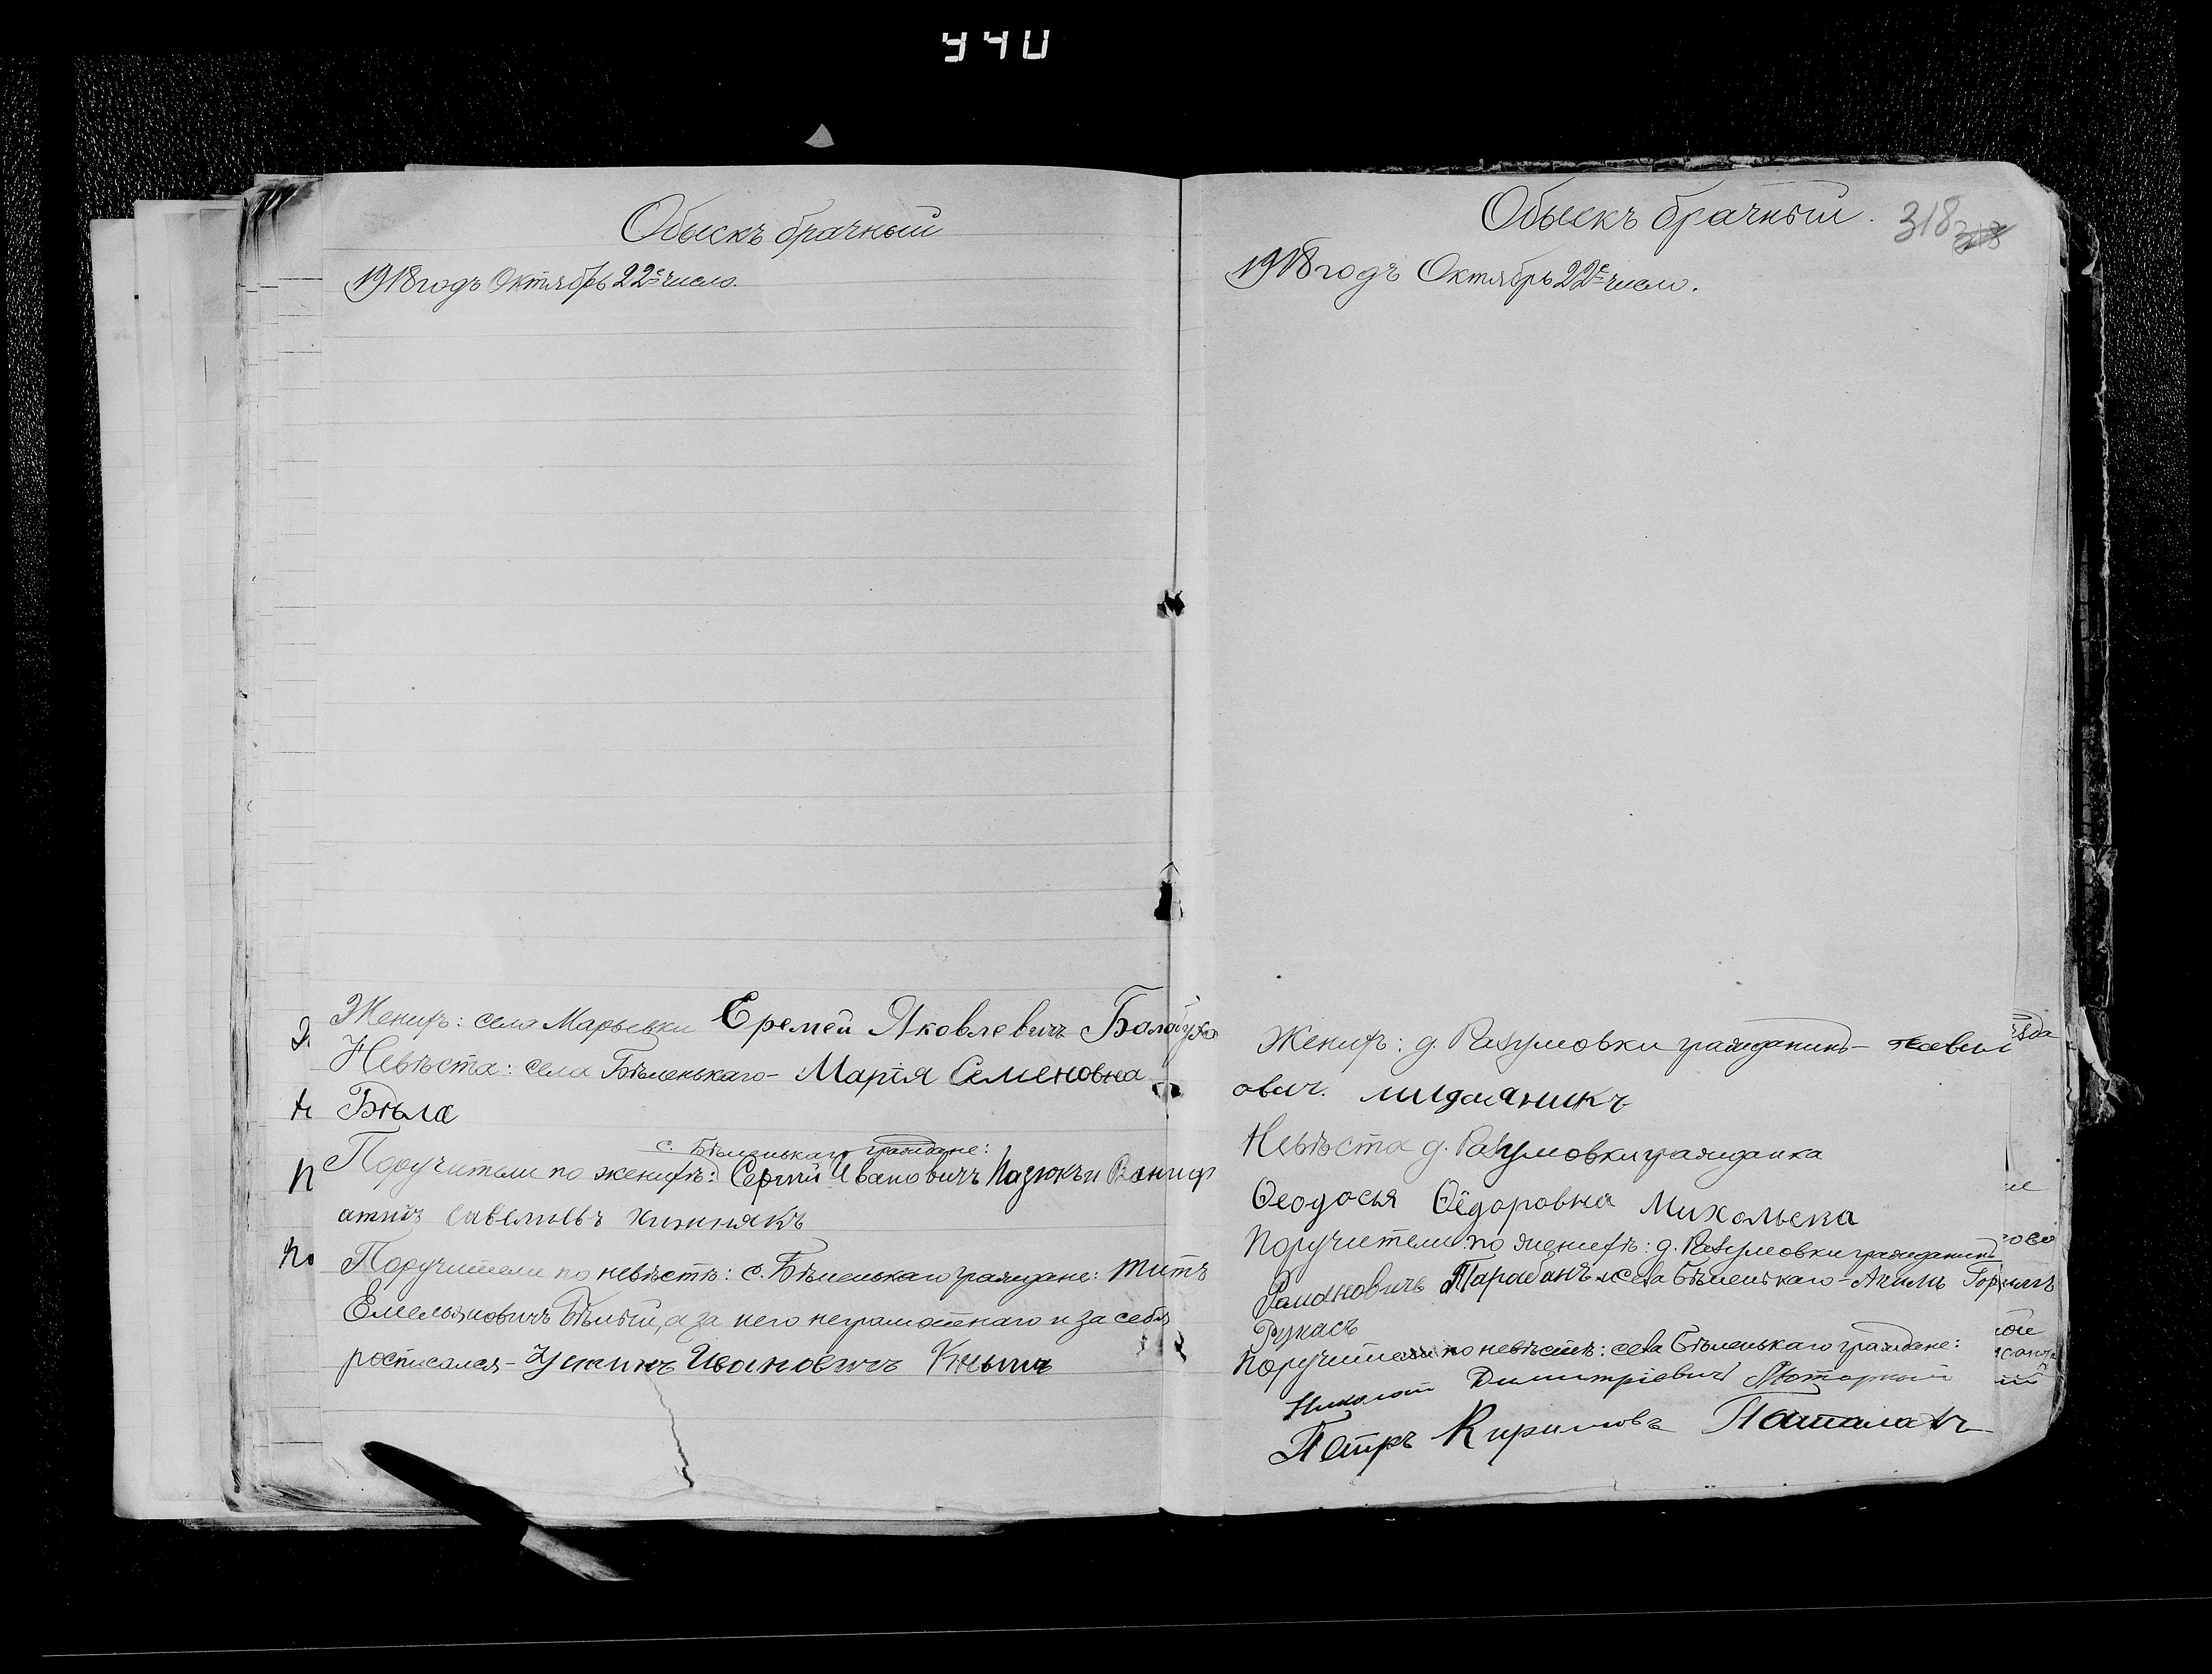 940
Обыскъ брачный
1918 годъ Октябрь 22е число.
Женихъ: села Марьевки Еремей Яковлевичъ Балабуха
Невѣста: села Бѣленькаго - Марія Семеновна
Бѣла
с. Бѣленькаго граждане:
Поручители по женихѣ: Сергій Ивановичъ Назюкъ и Вониф
атій Савельевъ Хижнякъ
Поручители по невѣстѣ: с. Бѣленькаго граждане: Титъ
Емельяновичъ Бѣлый, а за него неграмотнаго и за себя
росписался - Устинъ Ивановичъ Кнышъ
Обыскъ брачный.
318
1918 годъ Октябрь 22е число.
Женихъ: д. Разумовки гражданинъ -
ович.
Невѣста д. Разумовки гражданка
Ѳеодосья Ѳёдоровна Михальска
Поручители по женихѣ: д. Разумовки гражданинъ
Романовичъ Тарабанъ и села Бѣленькаго -
Рукасъ
Поручители по невѣстѣ: села Бѣленькаго граждане:
Николай Димитріевичъ Моторный
Петръ Кириловъ Паталахъ